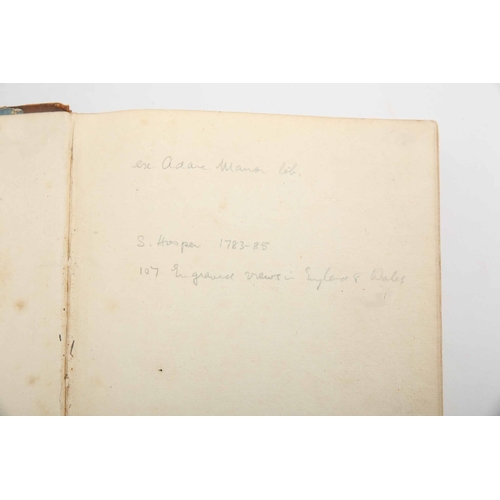 ex Adare Manor lib.
S. Hooper 1783-85
107 Engraved views in England & Wales